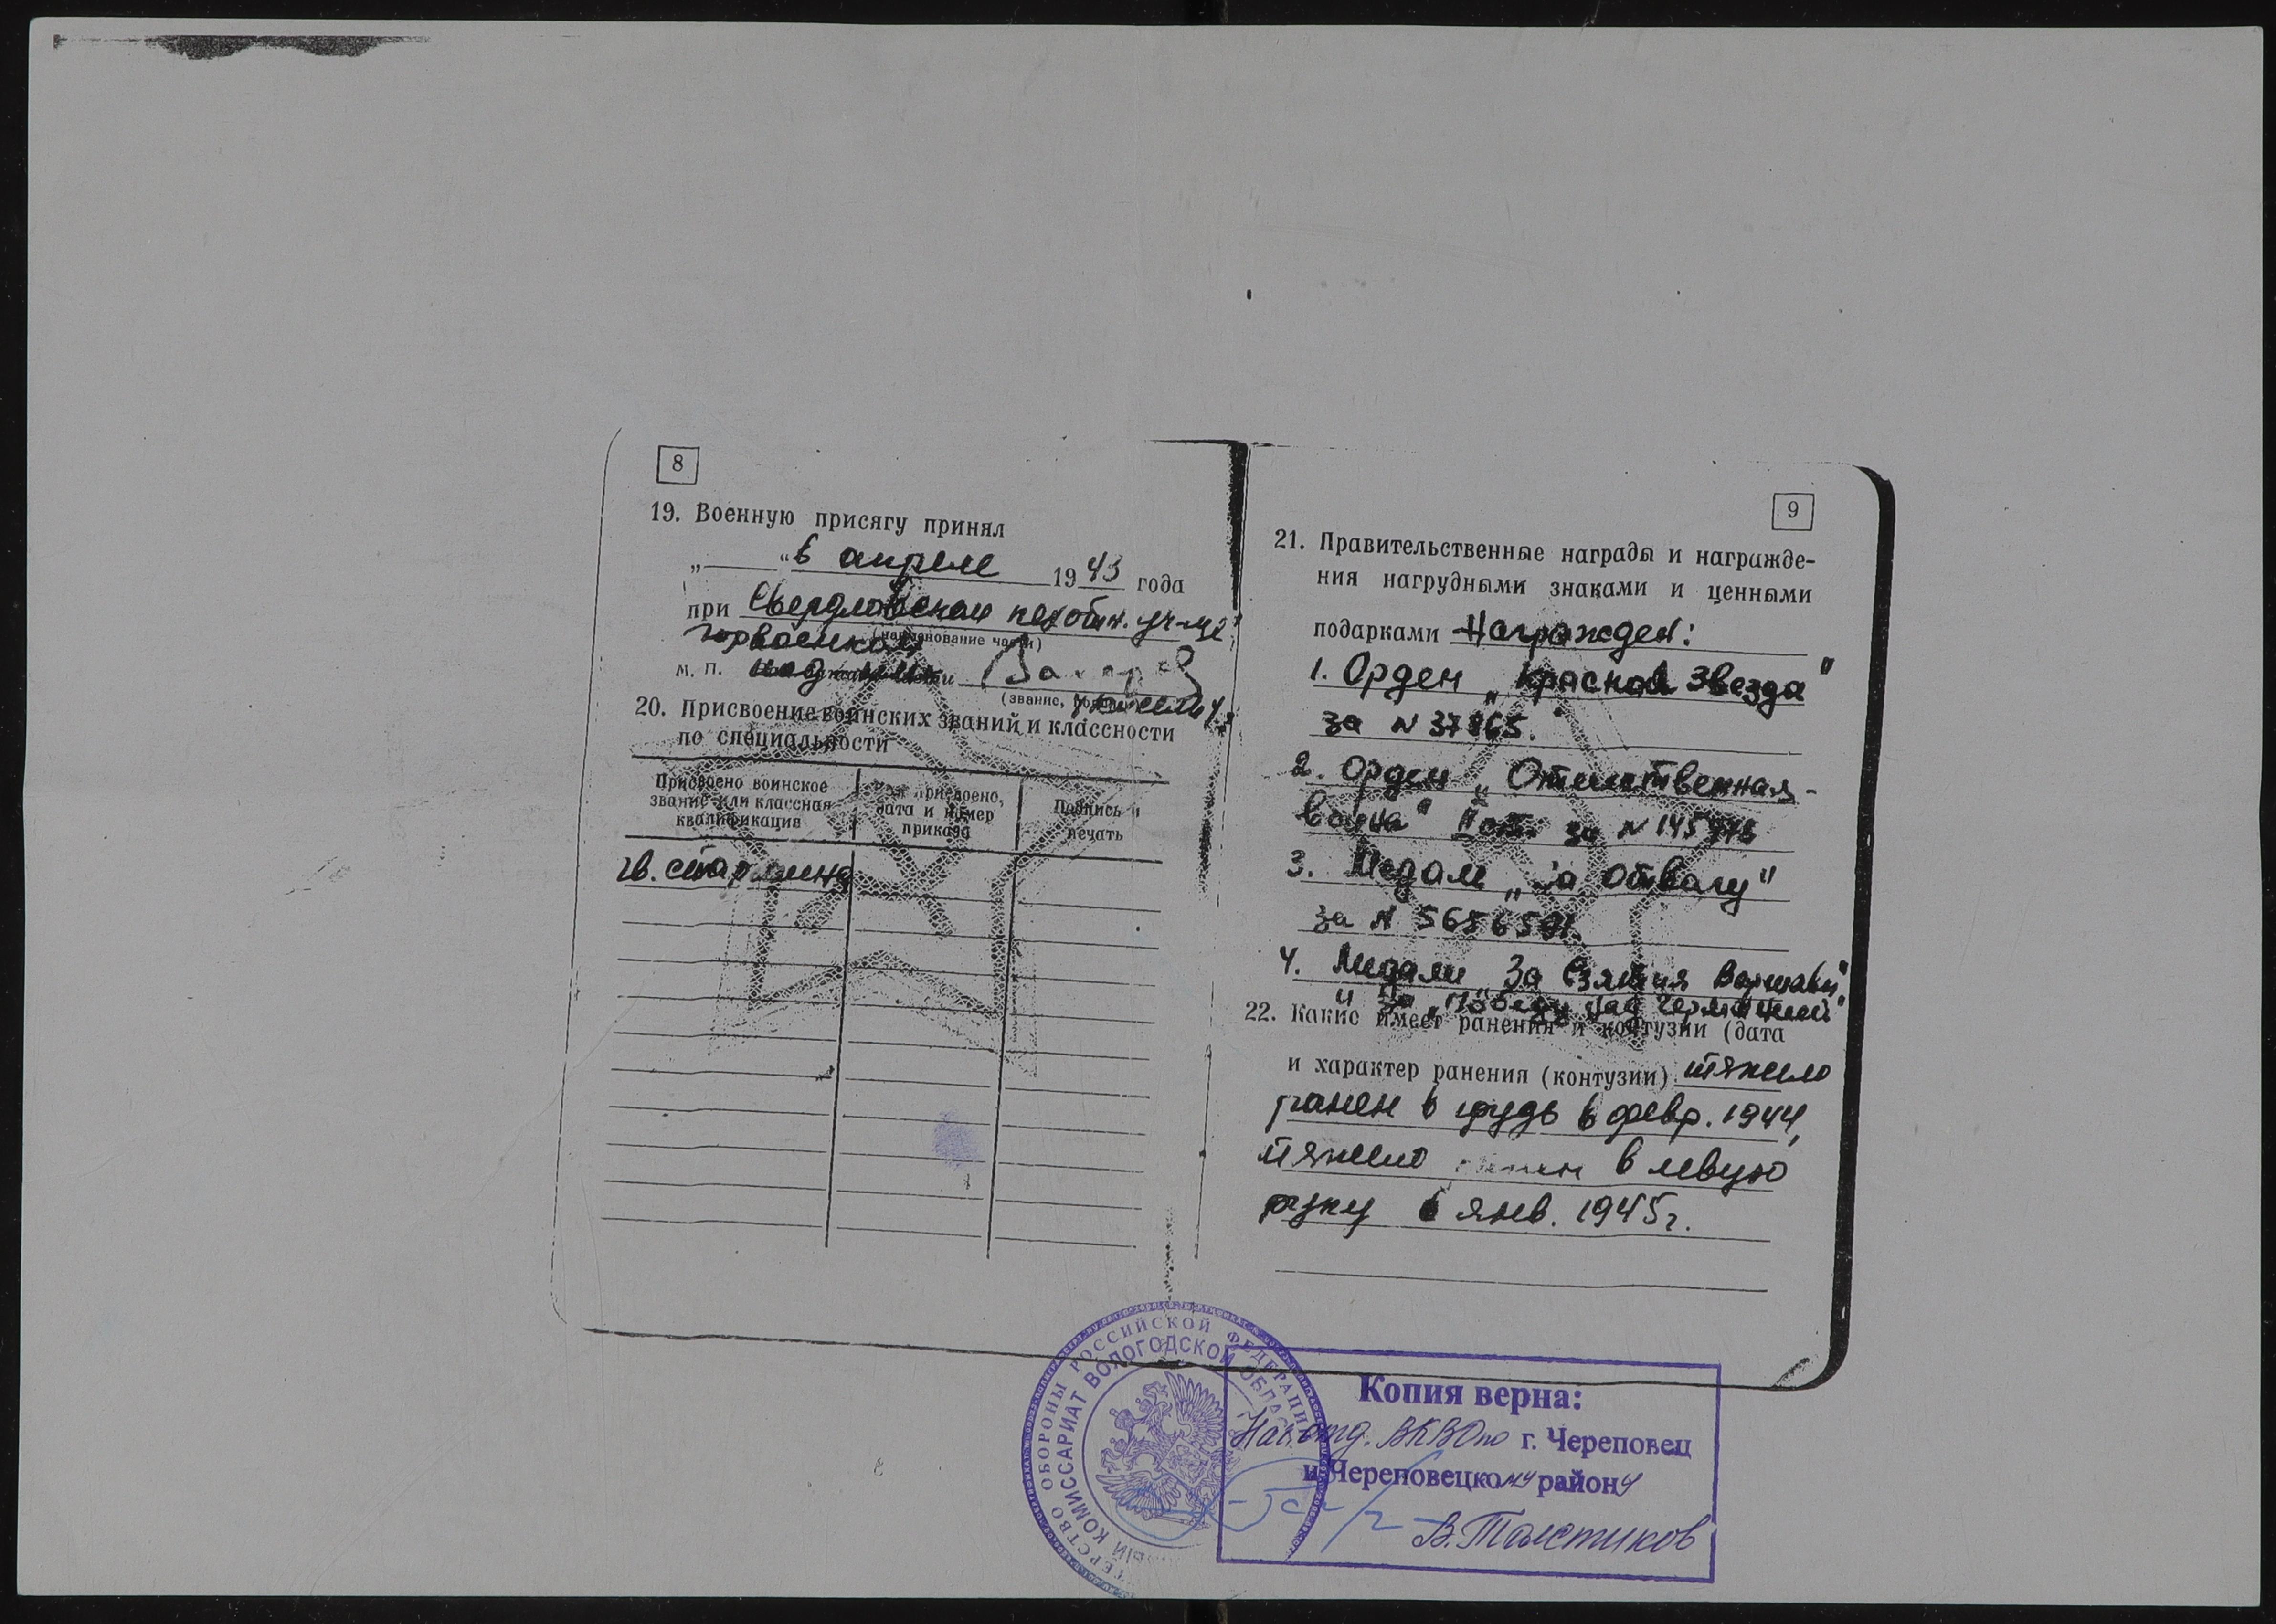 8
19. Военную присягу принял
„ “ в апреле 1943 года
при Свердловском пехотн. уч-ще
(наименование части)
горвоенком
м. п.
(звание,
20. Присвоение воинских званий и классности
по специальности
Присвоено воинское
звание или классная
квалификация
Кем присвоено,
дата и номер
приказа
Подпись и
печать
гв. старшина
9
21. Правительственные награды и награжде-
ния нагрудными знаками и ценными
подарками Награжден:
1. Орден „Красной Звезда"
за N
2. Орден „Отечественная
война" II ст. за N
3. Медаль „За отвагу"
за N
4. Медали „За взятия Варшавы"
и За „Победу над Германией"
22. Какие имеет ранения и контузии (дата
и характер ранения (контузии) тяжело
ранен в грудь в февр. 1944,
тяжело ранен в левую
руку в янв. 1945 г.
ОБОРОНЫ РОССИЙСКОЙ ФЕДЕРАЦИИ
КОМИССАРИАТ ВОЛОГОДСКОЙ
Копия верна:
Нач. отд. ВКВО по г. Череповец
и Череповецкому району
В. Толстиков